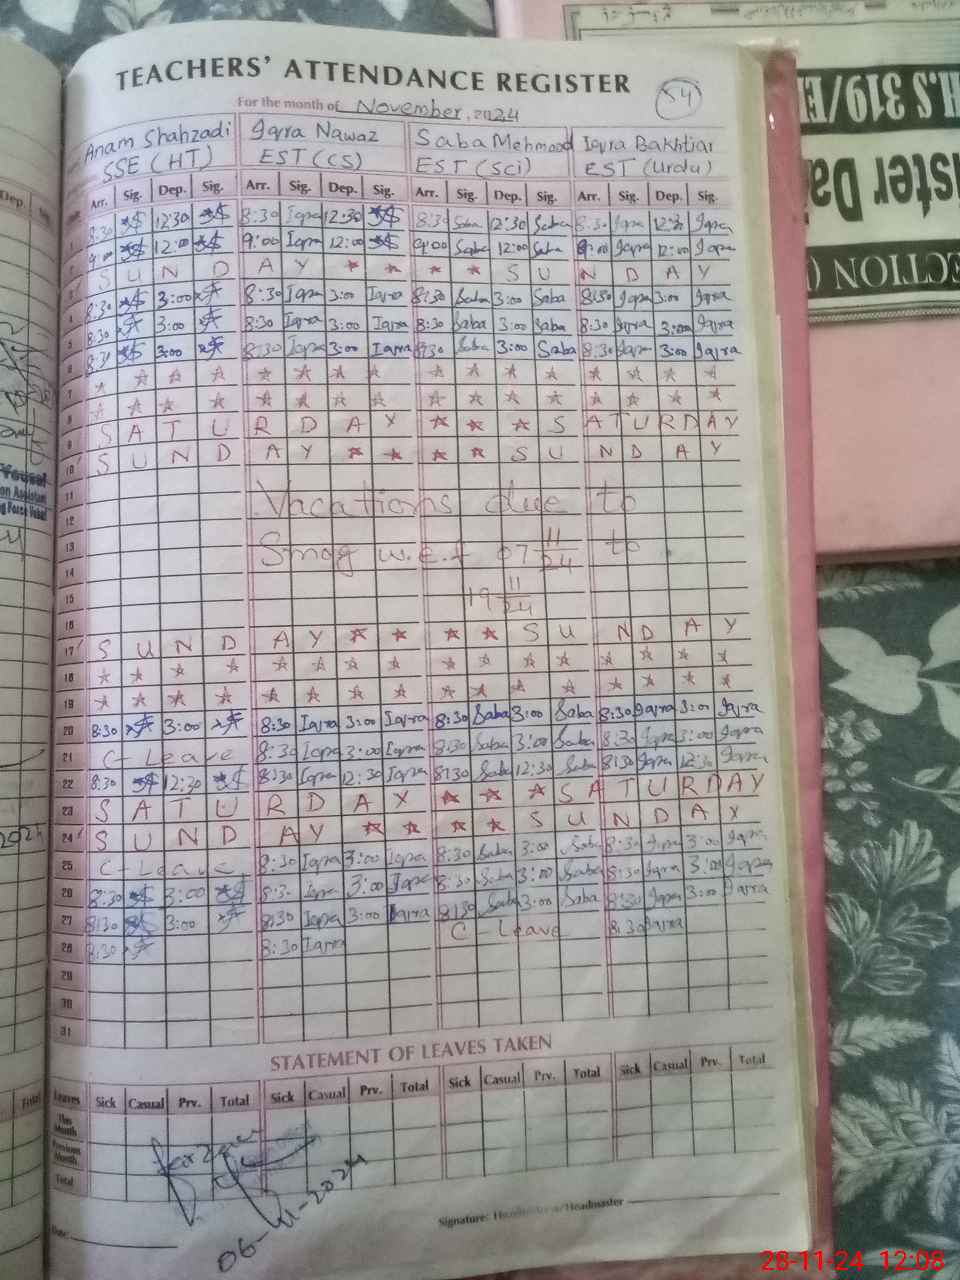 TEACHERS' ATTENDANCE REGISTER
54
For the month of November, 2024
Anam Shahzadi Iqra Nawaz Saba Mehmood Iqra Bakhtiar
SSE (HT) EST (CS) EST (Sci) EST (Urdu)
Arr. Sig. Dep. Sig. Arr. Sig. Dep. Sig. Arr. Sig. Dep. Sig. Arr. Sig. Dep. Sig.
1 8:30 12:30 8:30 Iqra 12:30 8:30 Saba 12:30 Saba 8:30 Iqra 12:30 Iqra
2 9:00 12:00 9:00 Iqra 12:00 9:00 Saba 12:00 Saba 9:00 Iqra 12:00 Iqra
3 S U N D A Y * * * * S U N D A Y
4 8:30 3:00 8:30 Iqra 3:00 Iqra 8:30 Saba 3:00 Saba 8:30 Iqra 3:00 Iqra
5 8:30 3:00 8:30 Iqra 3:00 Iqra 8:30 Saba 3:00 Saba 8:30 Iqra 3:00 Iqra
6 8:30 3:00 8:30 Iqra 3:00 Iqra 8:30 Saba 3:00 Saba 8:30 Iqra 3:00 Iqra
7 * * * * * * * * * * * * * * * *
8 * * * * * * * * * * * * * * * *
9 S A T U R D A Y * * * S A T U R D A Y
10 S U N D A Y * * * * S U N D A Y
11 Vacations due to
12
13 Smog w.e.f 07 11/24 to
14
15 19 11/24
16
17 S U N D A Y * * * * S U N D A Y
18 * * * * * * * * * * * * * * * *
19 * * * * * * * * * * * * * * * *
20 8:30 3:00 8:30 Iqra 3:00 Iqra 8:30 Saba 3:00 Saba 8:30 Iqra 3:00 Iqra
21 C-Leave 8:30 Iqra 3:00 Iqra 8:30 Saba 3:00 Saba 8:30 Iqra 3:00 Iqra
22 8:30 12:30 8:30 Iqra 12:30 Iqra 8:30 Saba 12:30 Saba 8:30 Iqra 12:30 Iqra
23 S A T U R D A Y * * * S A T U R D A Y
24 S U N D A Y * * * * S U N D A Y
25 C-Leave 8:30 Iqra 3:00 Iqra 8:30 Saba 3:00 Saba 8:30 Iqra 3:00 Iqra
26 8:30 3:00 8:30 Iqra 3:00 Iqra 8:30 Saba 3:00 Saba 8:30 Iqra 3:00 Iqra
27 8:30 3:00 8:30 Iqra 3:00 Iqra 8:30 Saba 3:00 Saba 8:30 Iqra 3:00 Iqra
28 8:30 8:30 Iqra C-Leave 8:30 Iqra
29
30
31
STATEMENT OF LEAVES TAKEN
Leaves Sick Casual Prv. Total Sick Casual Prv. Total Sick Casual Prv. Total Sick Casual Prv. Total
This Month
Previous Month
Total
06-11-2024
Date:
Signature: Headmistress/Headmaster
Dep.
Total
2024
H.S 319/E
ister Da
ECTION (
28-11-24 12:08